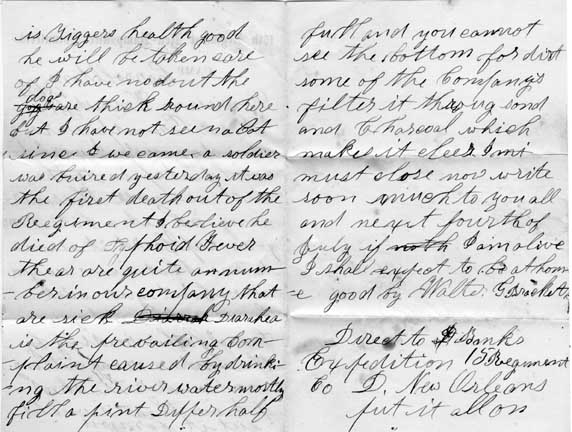 is Biggers health good
he will be taken care
of I have no dout the
dogs are thick around here
but I have not seen a Cat
sinc I we came a soldier
was buired yesterday it was
the first death out of the
Regiment I believe he
died of Typhoid Fever
thear are quite an num-
ber in our company that
are sick Diarhea
is the prevailing Com-
plaint caused by drinki-
ng the river water mostly
fill a pint Dipper half
full and you cannot
see the bottom for dirt
some of the Companys
filter it throug sand
and Charcoal which
makes it cleer I mi
must close now write
soon much to you all
and next fourth of
July if I am alive
I shall expect to be at hom
-e good by Walter G Brackett
Direct to Banks
Expedition 15 Regiment
Co D. New Orleans
put it all on